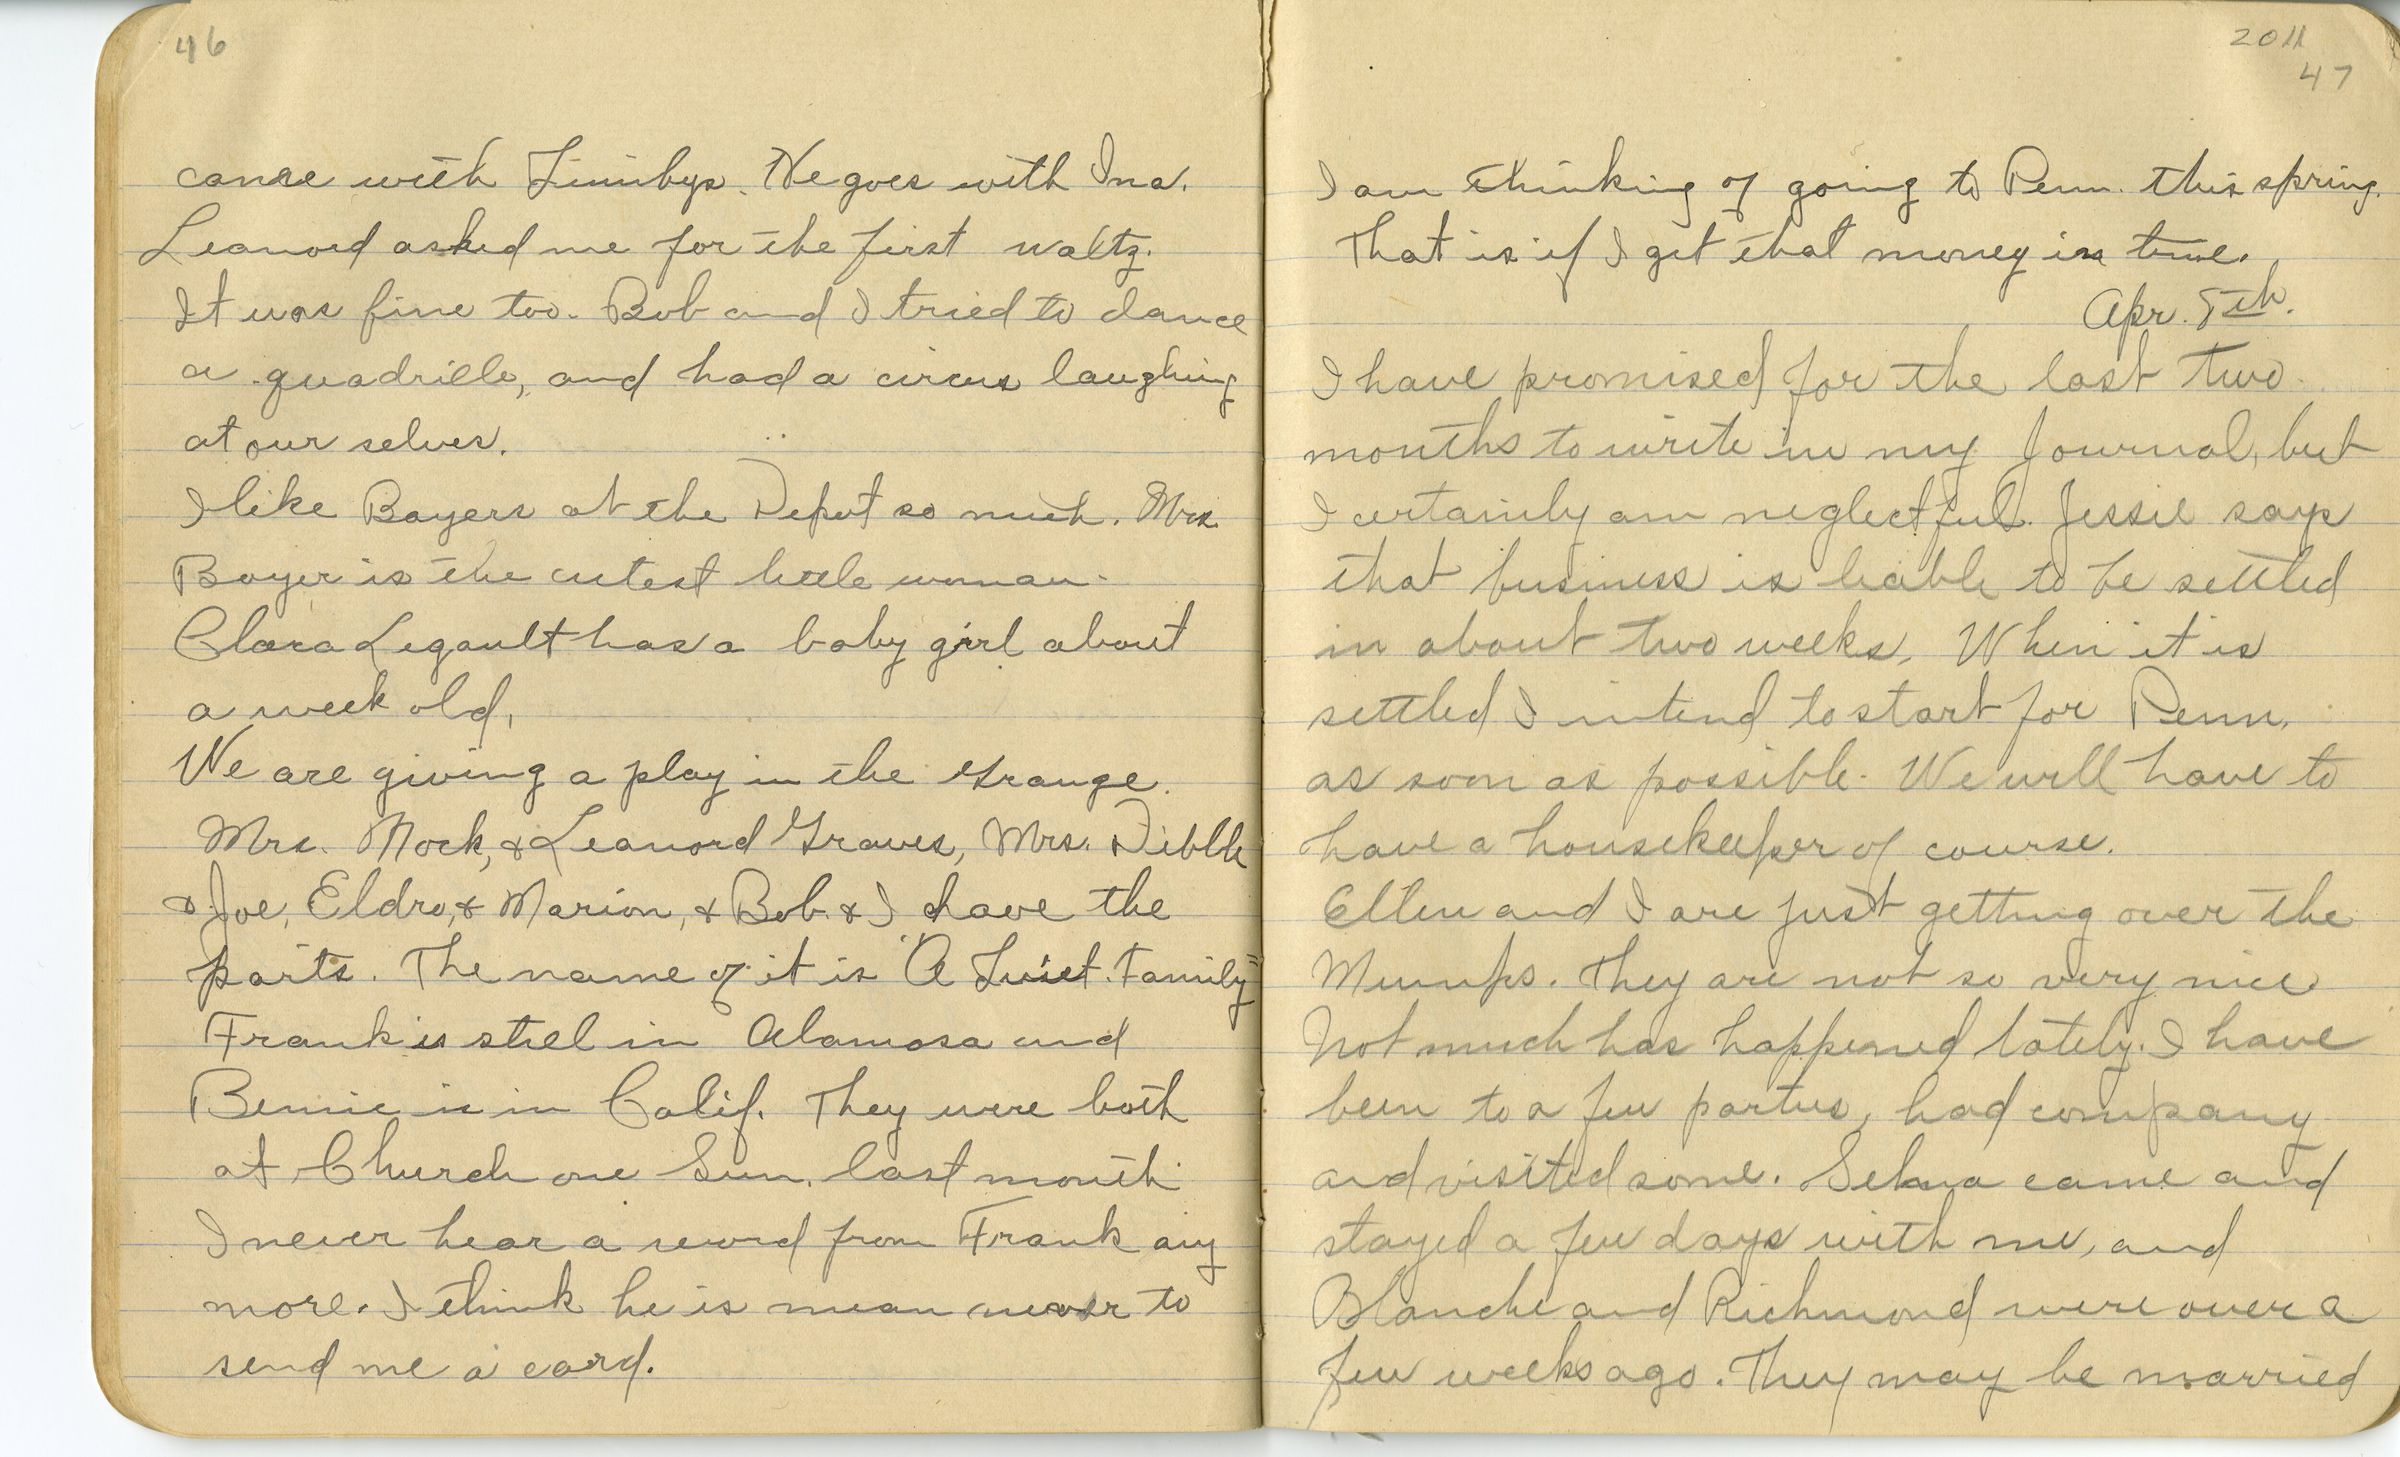 46
came with Limibys. He goes with Ina.
Leanord asked me for the first waltz.
It was fine too. Bob and I tried to dance
a quadrille, and had a circus laughing
at our selves.
I like Boyers at the Depot so much. Mrs.
Boyer is the cutest little woman.
Clara Legault has a baby girl about
a week old.
We are giving a play in the Grange.
Mrs. Mock, & Leanord Graves, Mrs. Dibble
& Joe, Eldro, & Marion, & Bob & I have the
parts. The name of it is "A Quiet Family"
Frank is still in Alamosa and
Bennie is in Calif. They were both
at Church one Sun. last month.
I never hear a word from Frank any
more. I think he is mean never to
send me a card.
2011
47
I am thinking of going to Penn. this spring.
That is if I get that money in time.
Apr. 8th.
I have promised for the last two
months to write in my Journal, but
I certainly am neglectful. Jessie says
that business is liable to be settled
in about two weeks. When it is
settled I intend to start for Penn.
as soon as possible. We will have to
have a housekeeper of course.
Ellen and I are just getting over the
Mumps. They are not so very nice
Not much has happened lately. I have
been to a few parties, had company
and visited some. Selma came and
stayed a few days with me, and
Blanche and Richmond were over a
few weeks ago. They may be married